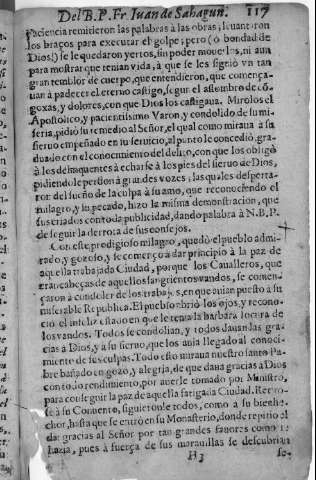 Del B. P. Fr. Iuan de Sahagun. 117
Paciencia remitieron las palabras à las obras; leuantaron
los braços para executar el golpe; pero (ò bondad de
Dios!) se le quedaron yertos, sin poder mouerlos, ni aun
para mostrar que tenian vida, à que se les siguiò vn tan
gran temblor de cuerpo, que entendieron, que començauan
à padecer el eterno castigo, segun el assombro de
goxas, y dolores, con que Dios los castigaua. Miròlos el
Apostolico, y pacientissimo Varon, y condolido de su miseria,
pidiò su remedio al Señor, el qual como miraua à su
sieruo empeñado en su seruicio, al punto le concediò,
con el conocimiento del delito, con que los obligò
à los delinquentes à echarse à los pies del sieruo de Dios,
pidiendole perdon à grandes vozes; las quales
del sueño de la culpa à su amo, que reconociendo el
milagro, y su pecado, hizo la misma demonstracion, que
sus criados con toda publicidad, dando palabra à N.B.P.
de seguir la derrota de sus consejos.
Con este prodigioso milagro, quedò el pueblo admirado,
y gozoso, y se començò a dar principio à la paz de
aquella trabajada Ciudad, porque los Caualleros, que
eran cabeças de aquellos sangrientos vandos, se començaron
à condoler de los trabajos, en que auian puesto a su
miserable Republica. El pueblo abriò los ojos, y reconociò
el infeliz estado en que le tenia la barbara locura de
los vandos. Todos se condolian, y todos dauan las gracias
à Dios, y à su sieruo, que los auia llegado al conocimiento
de sus culpas. Todo esto miraua nuestro santo Padre
bañado en gozo, y alegria, de que daua gracias à Dios
con todo rendimiento, por auerle tomado por Ministro,
para conseguir la paz de aquella fatigada Ciudad.
à su Conuento, siguieronle todos, como a su bienhechor,
hasta que se entrò en su Monasterio, donde repitiò el
dar gracias al Señor por tan grandes fauores como le
hazia, pues à fuerça de sus marauillas se descubrian
H3 se-